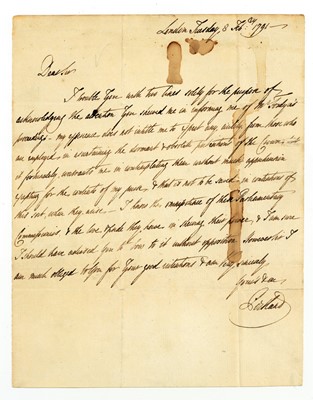 London Tuesday, 8 Feb.ry 1791
Dear Sir
I trouble You with two lines solely for the purpose of
acknowledging the attention You shewed me in informing me of Mr
proceedings - my experience does not entitle me to expect any, from those who
are employed in ascertaining the dormant & obsolete of the Crown
it fortunately warrants me in contemplating them without much apprehension
for the contents of my purse, & that is not to be saved in contentions of
this sort when they arise - I know the of these Parliamentary
Commissioners & the love of they have in shewing their power, & I am sure
I should have advised You to bow to it without opposition However Sir I
am much obliged to You for Your good intentions & am very sincerely
Yours &ca